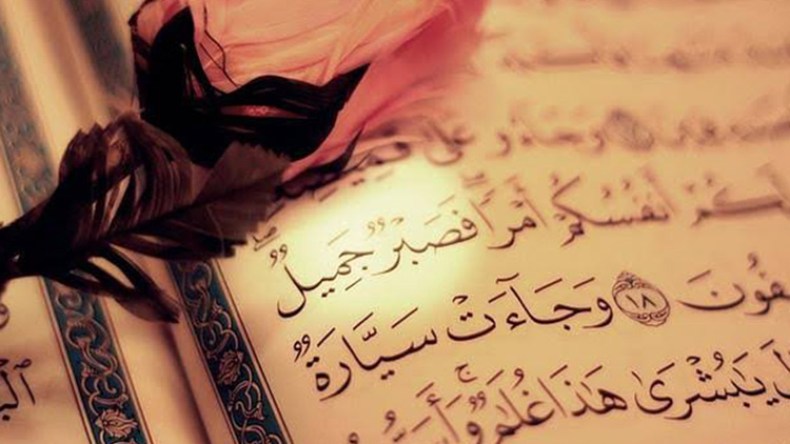 وَجَآءُو عَلَىٰ قَمِيصِهِۦ
لَكُمْ أَنفُسُكُمْ أَمْرًا فَصَبْرٌ جَمِيلٌ
صِفُونَ ١٨ وَجَآءَتْ سَيَّارَةٌ
لَ يَٰبُشْرَىٰ هَٰذَا غُلَٰمٌۚ وَأَسَرُّ